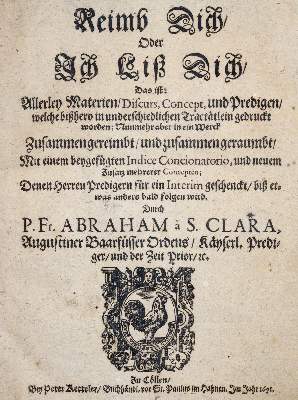 Reimb Dich/
Oder
Ich Liß Dich/
Das ist:
Allerley Materien/ Discurs, Concept, und Predigen/
welche bißhero in underschiedlichen Tractätlein gedruckt
worden: Nunmehr aber in ein Werck
Zusammengereimbt/ und zusammengeraumbt/
Mit einem beygefügten Indice Concionatorio, und neuem
Zusatz mehrerer Concepten;
Denen Herren Predigern für ein Interim geschenckt/ biß et-
was anders bald folgen wird.
Durch
P. Fr. ABRAHAM à S. CLARA,
Augustiner Baarfüsser Ordens/ Käyserl. Predi-
ger/ und der Zeit Prior/ ꝛc.
Zu Cöllen/
Bey Peter Ketteler/ Buchhändl. vor St. Paulus im Hahnen. Im Jahr 1691.